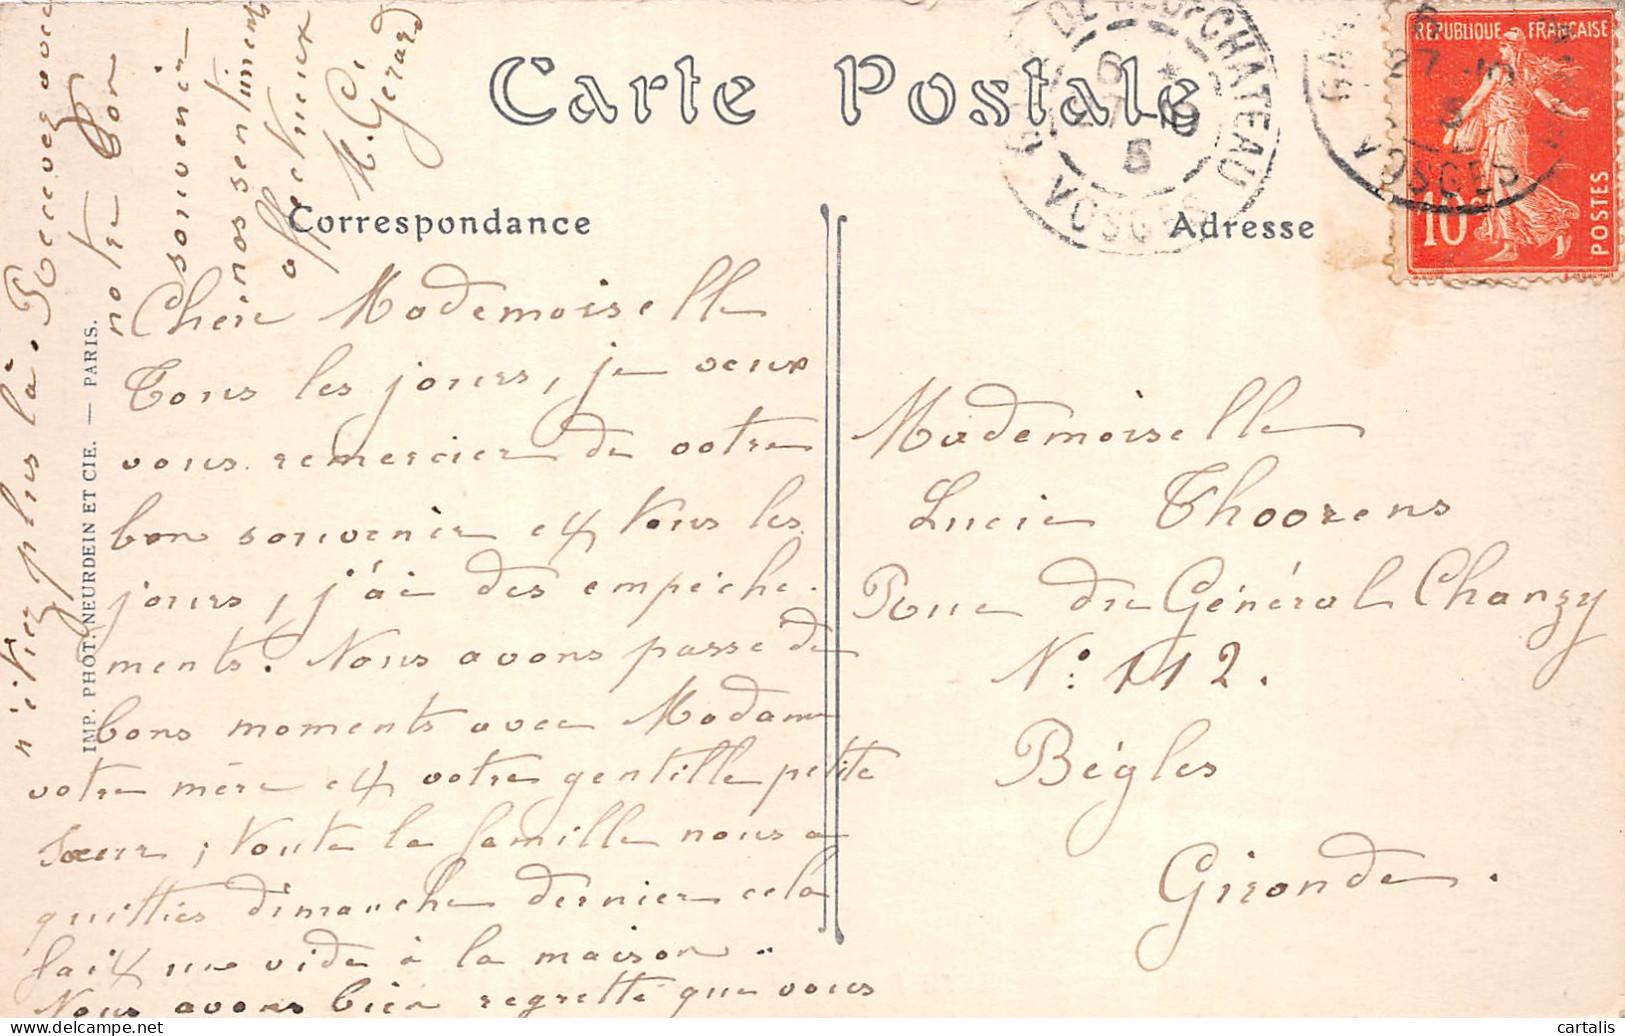 Carte Postale
Correspondance
Adresse
RÉPUBLIQUE FRANÇAISE
10c
POSTES
GARE DE NEUFCHATEAU
VOSGES
VOSGES
IMP. PHOT. NEURDEIN ET CIE. — PARIS.
Chère Mademoiselle
Tous les jours, je veux
vous remercier de votre
bon souvenir et tous les
jours, j'ai des empêche-
ments. Nous avons passé de
bons moments avec Madame
votre mère et votre gentille petite
sœur ; toute la famille nous a
quittés dimanche dernier cela
fait un vide à la maison.
Nous avons bien regretté que vous
n'étiez plus là. Recevez avec
notre bon
souvenir
nos sentiments
affectueux
M. Gérard
Mademoiselle
Lucie Thoorens
Rue du Général Chanzy
N° 112.
Bègles
Gironde.
delcampe.net
cartalis